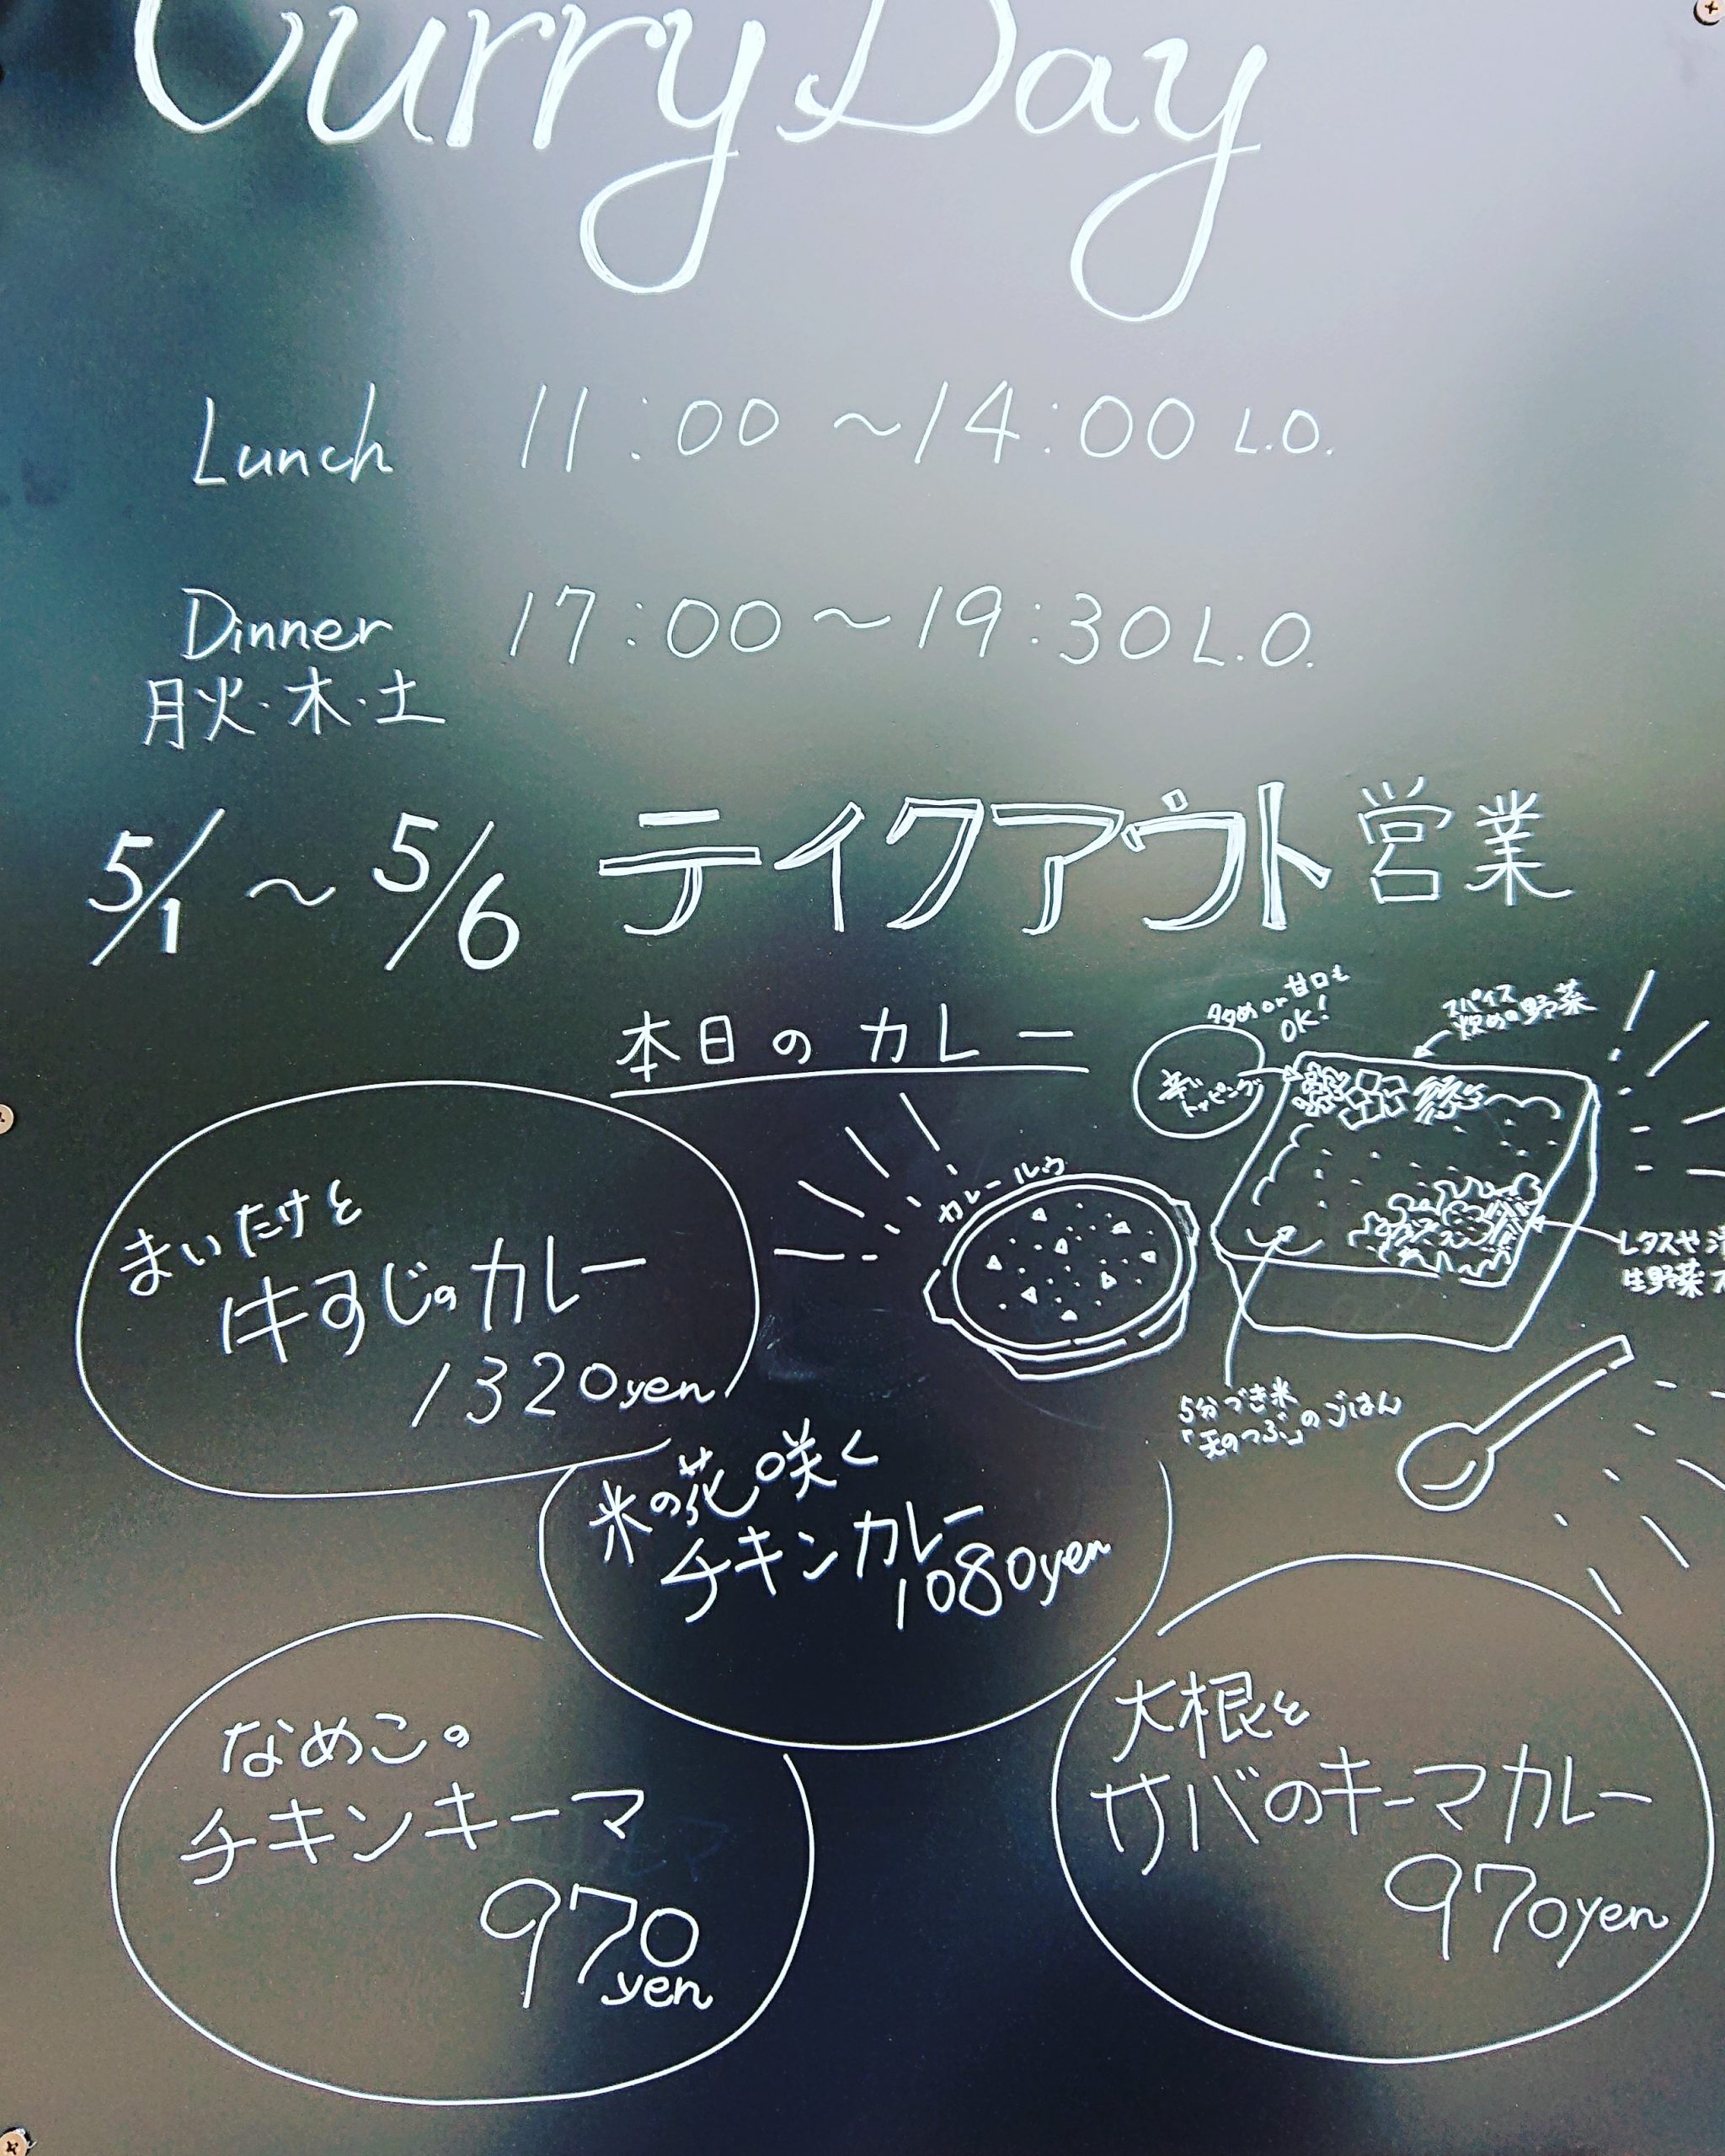 Curry Day
Lunch 11:00 ～ 14:00 L.O.
Dinner 17:00 ～ 19:30 L.O.
月火・木・土
5/1 ～ 5/6 テイクアウト営業
本日のカレー
多めor甘口も
OK!
トッピング
スパイス
炒めの野菜
カレールウ
レタスや
生野菜
5分づき米
「天のつぶ」のごはん
まいたけと
牛すじのカレー
1320yen
米の花咲く
チキンカレー
1080yen
なめこの
チキンキーマ
970
yen
大根と
サバのキーマカレー
970yen